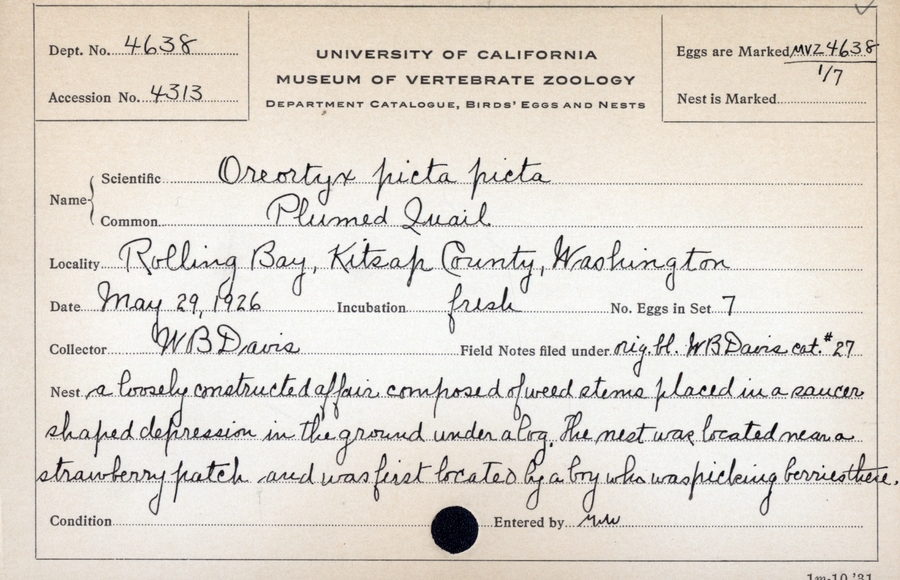 Dept. No. 4638
Accession No. 4313
UNIVERSITY OF CALIFORNIA
MUSEUM OF VERTEBRATE ZOOLOGY
DEPARTMENT CATALOGUE, BIRDS' EGGS AND NESTS
Eggs are Marked MVZ 4638
1/7
Nest is Marked
Name
Scientific Oreortyx picta picta
Common Plumed Quail
Locality Rolling Bay, Kitsap County, Washington
Date May 29, 1926 Incubation fresh No. Eggs in Set 7
Collector WB Davis Field Notes filed under orig. bl. WB Davis cat. #27
Nest a loosely constructed affair composed of weed stems placed in a saucer
shaped depression in the ground under a log. The nest was located near a
strawberry patch and was first located by a boy who was picking berries there.
Condition Entered by
1m-10 '31